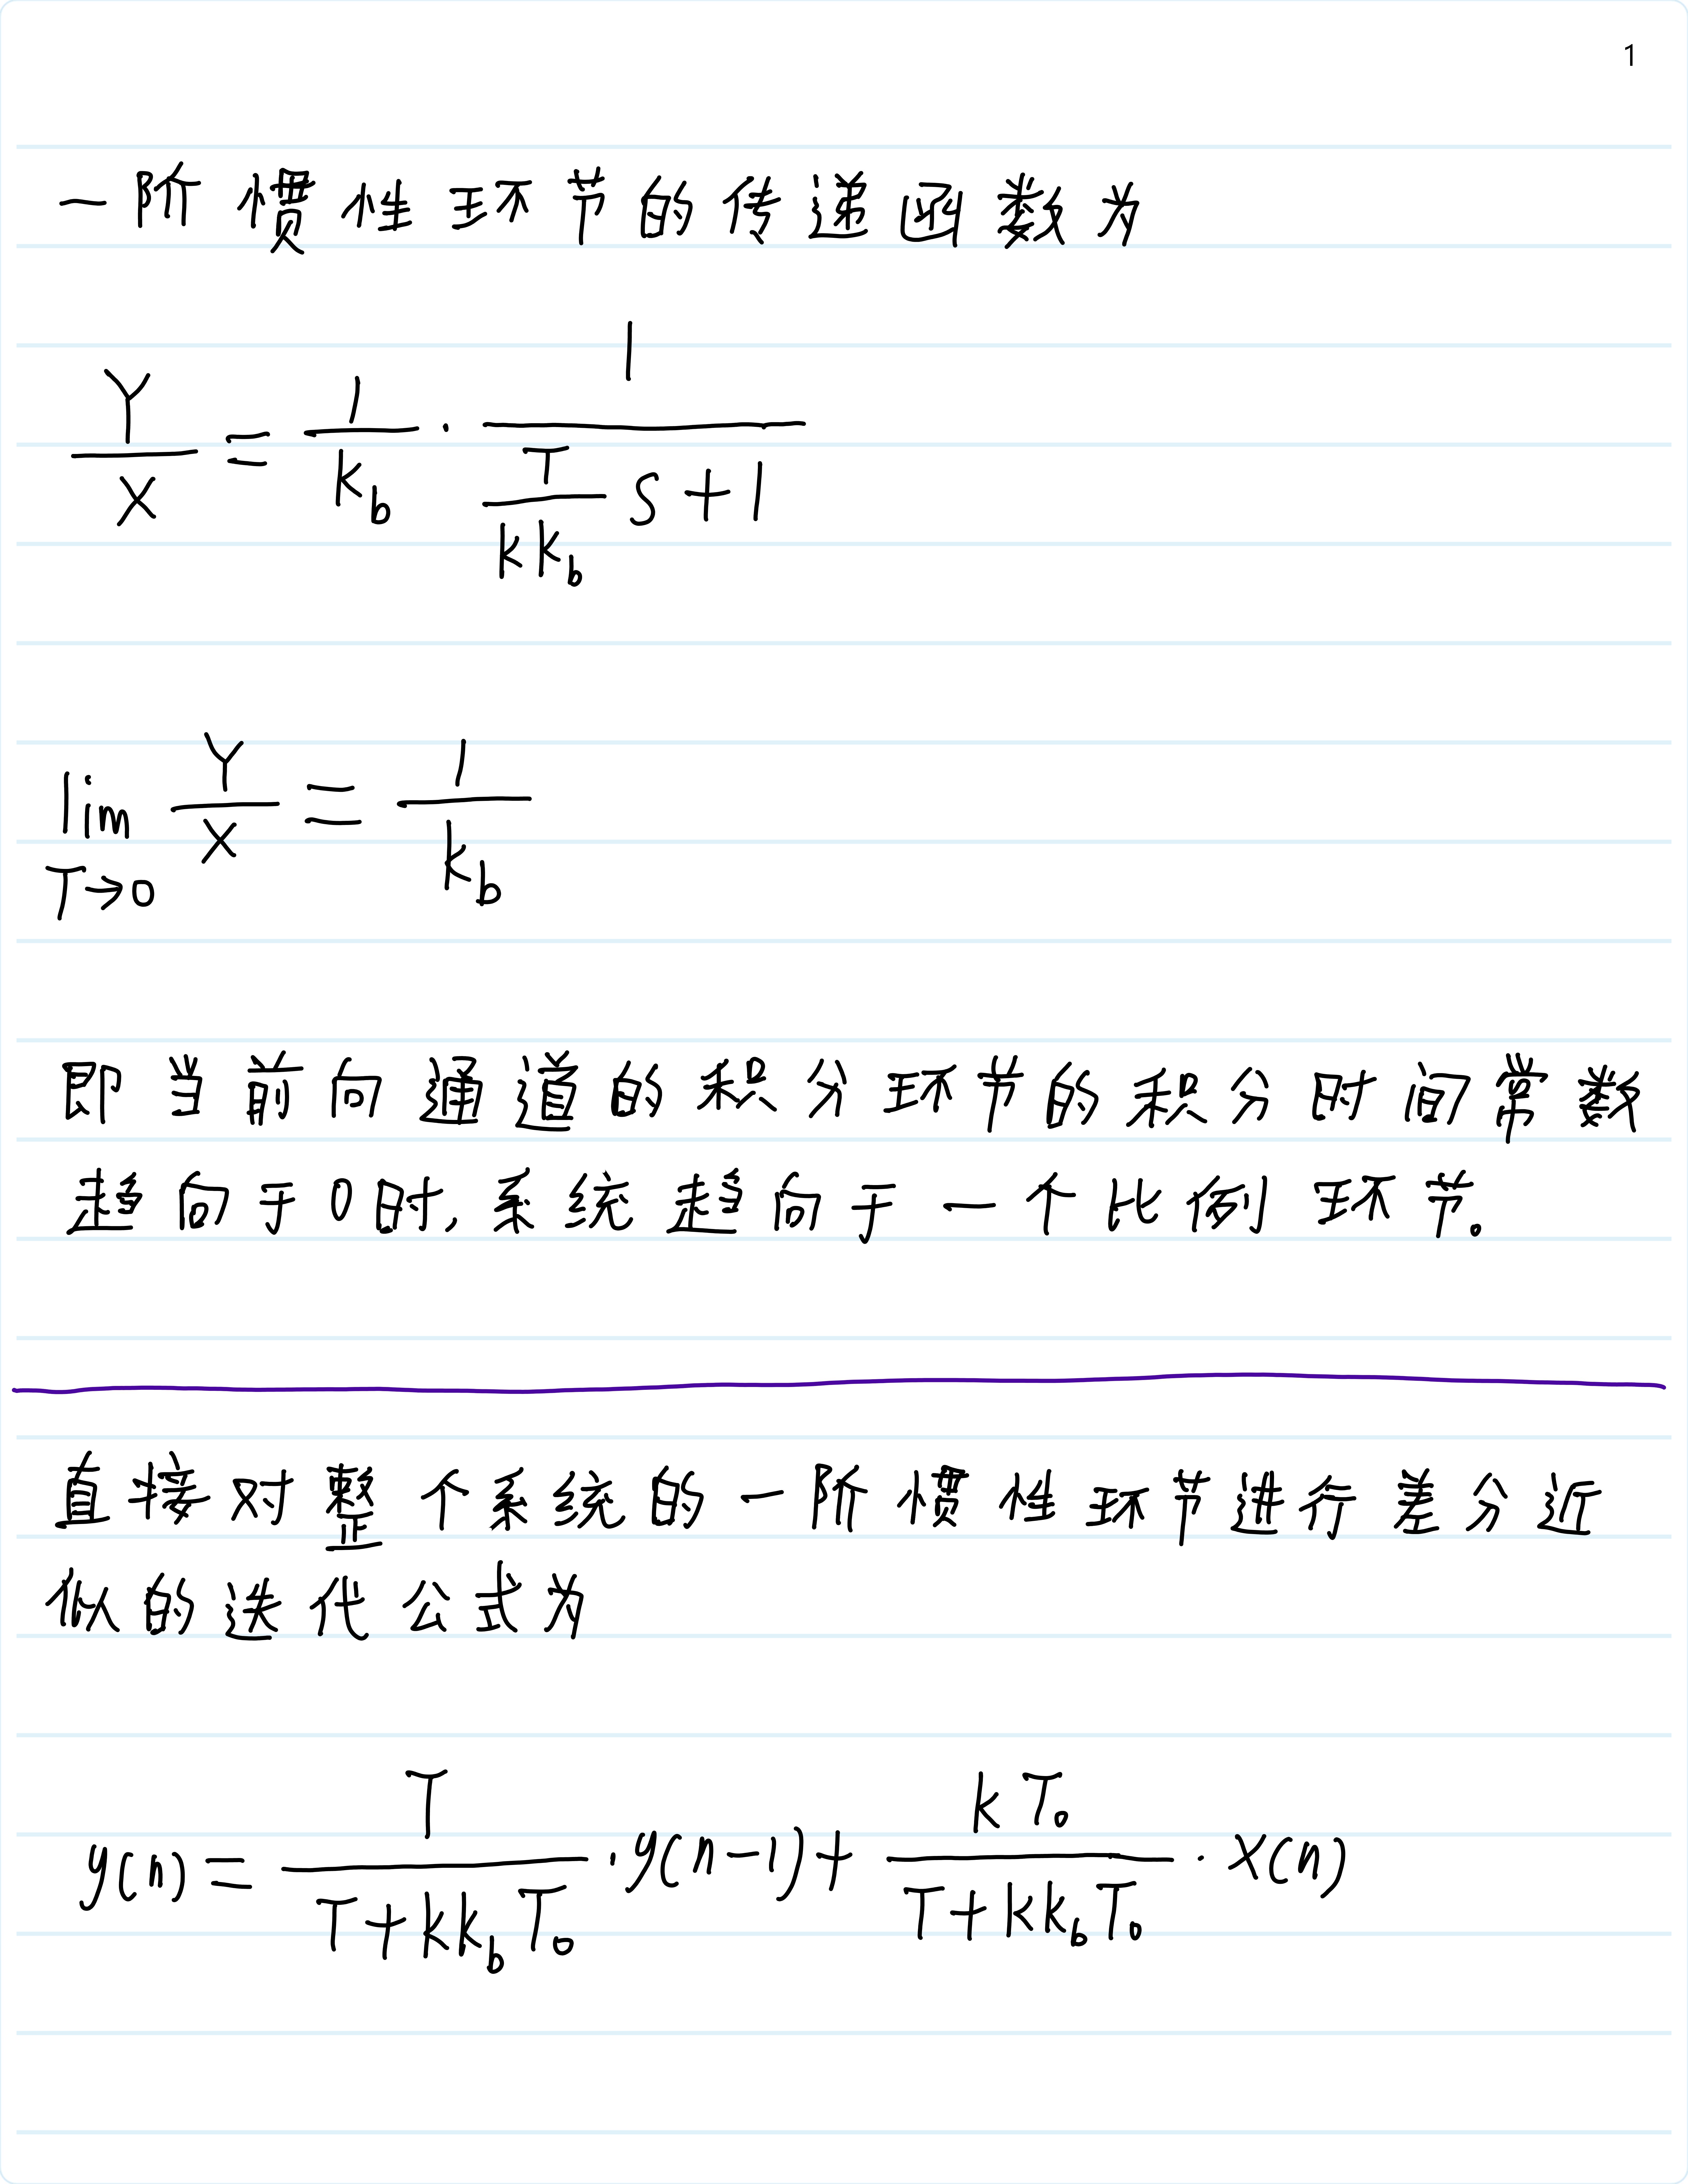 1
一阶惯性环节的传递函数为
Y/X = 1/k_b · 1/(T/(kk_b) s+1)
lim_{T→0} Y/X = 1/k_b
即当前向通道的积分环节的积分时间常数
趋向于0时,系统趋向于一个比例环节。
直接对整个系统的一阶惯性环节进行差分近
似的迭代公式为
y(n) = T/(T+kk_bT_0) · y(n-1) + kT_0/(T+kk_bT_0) · x(n)